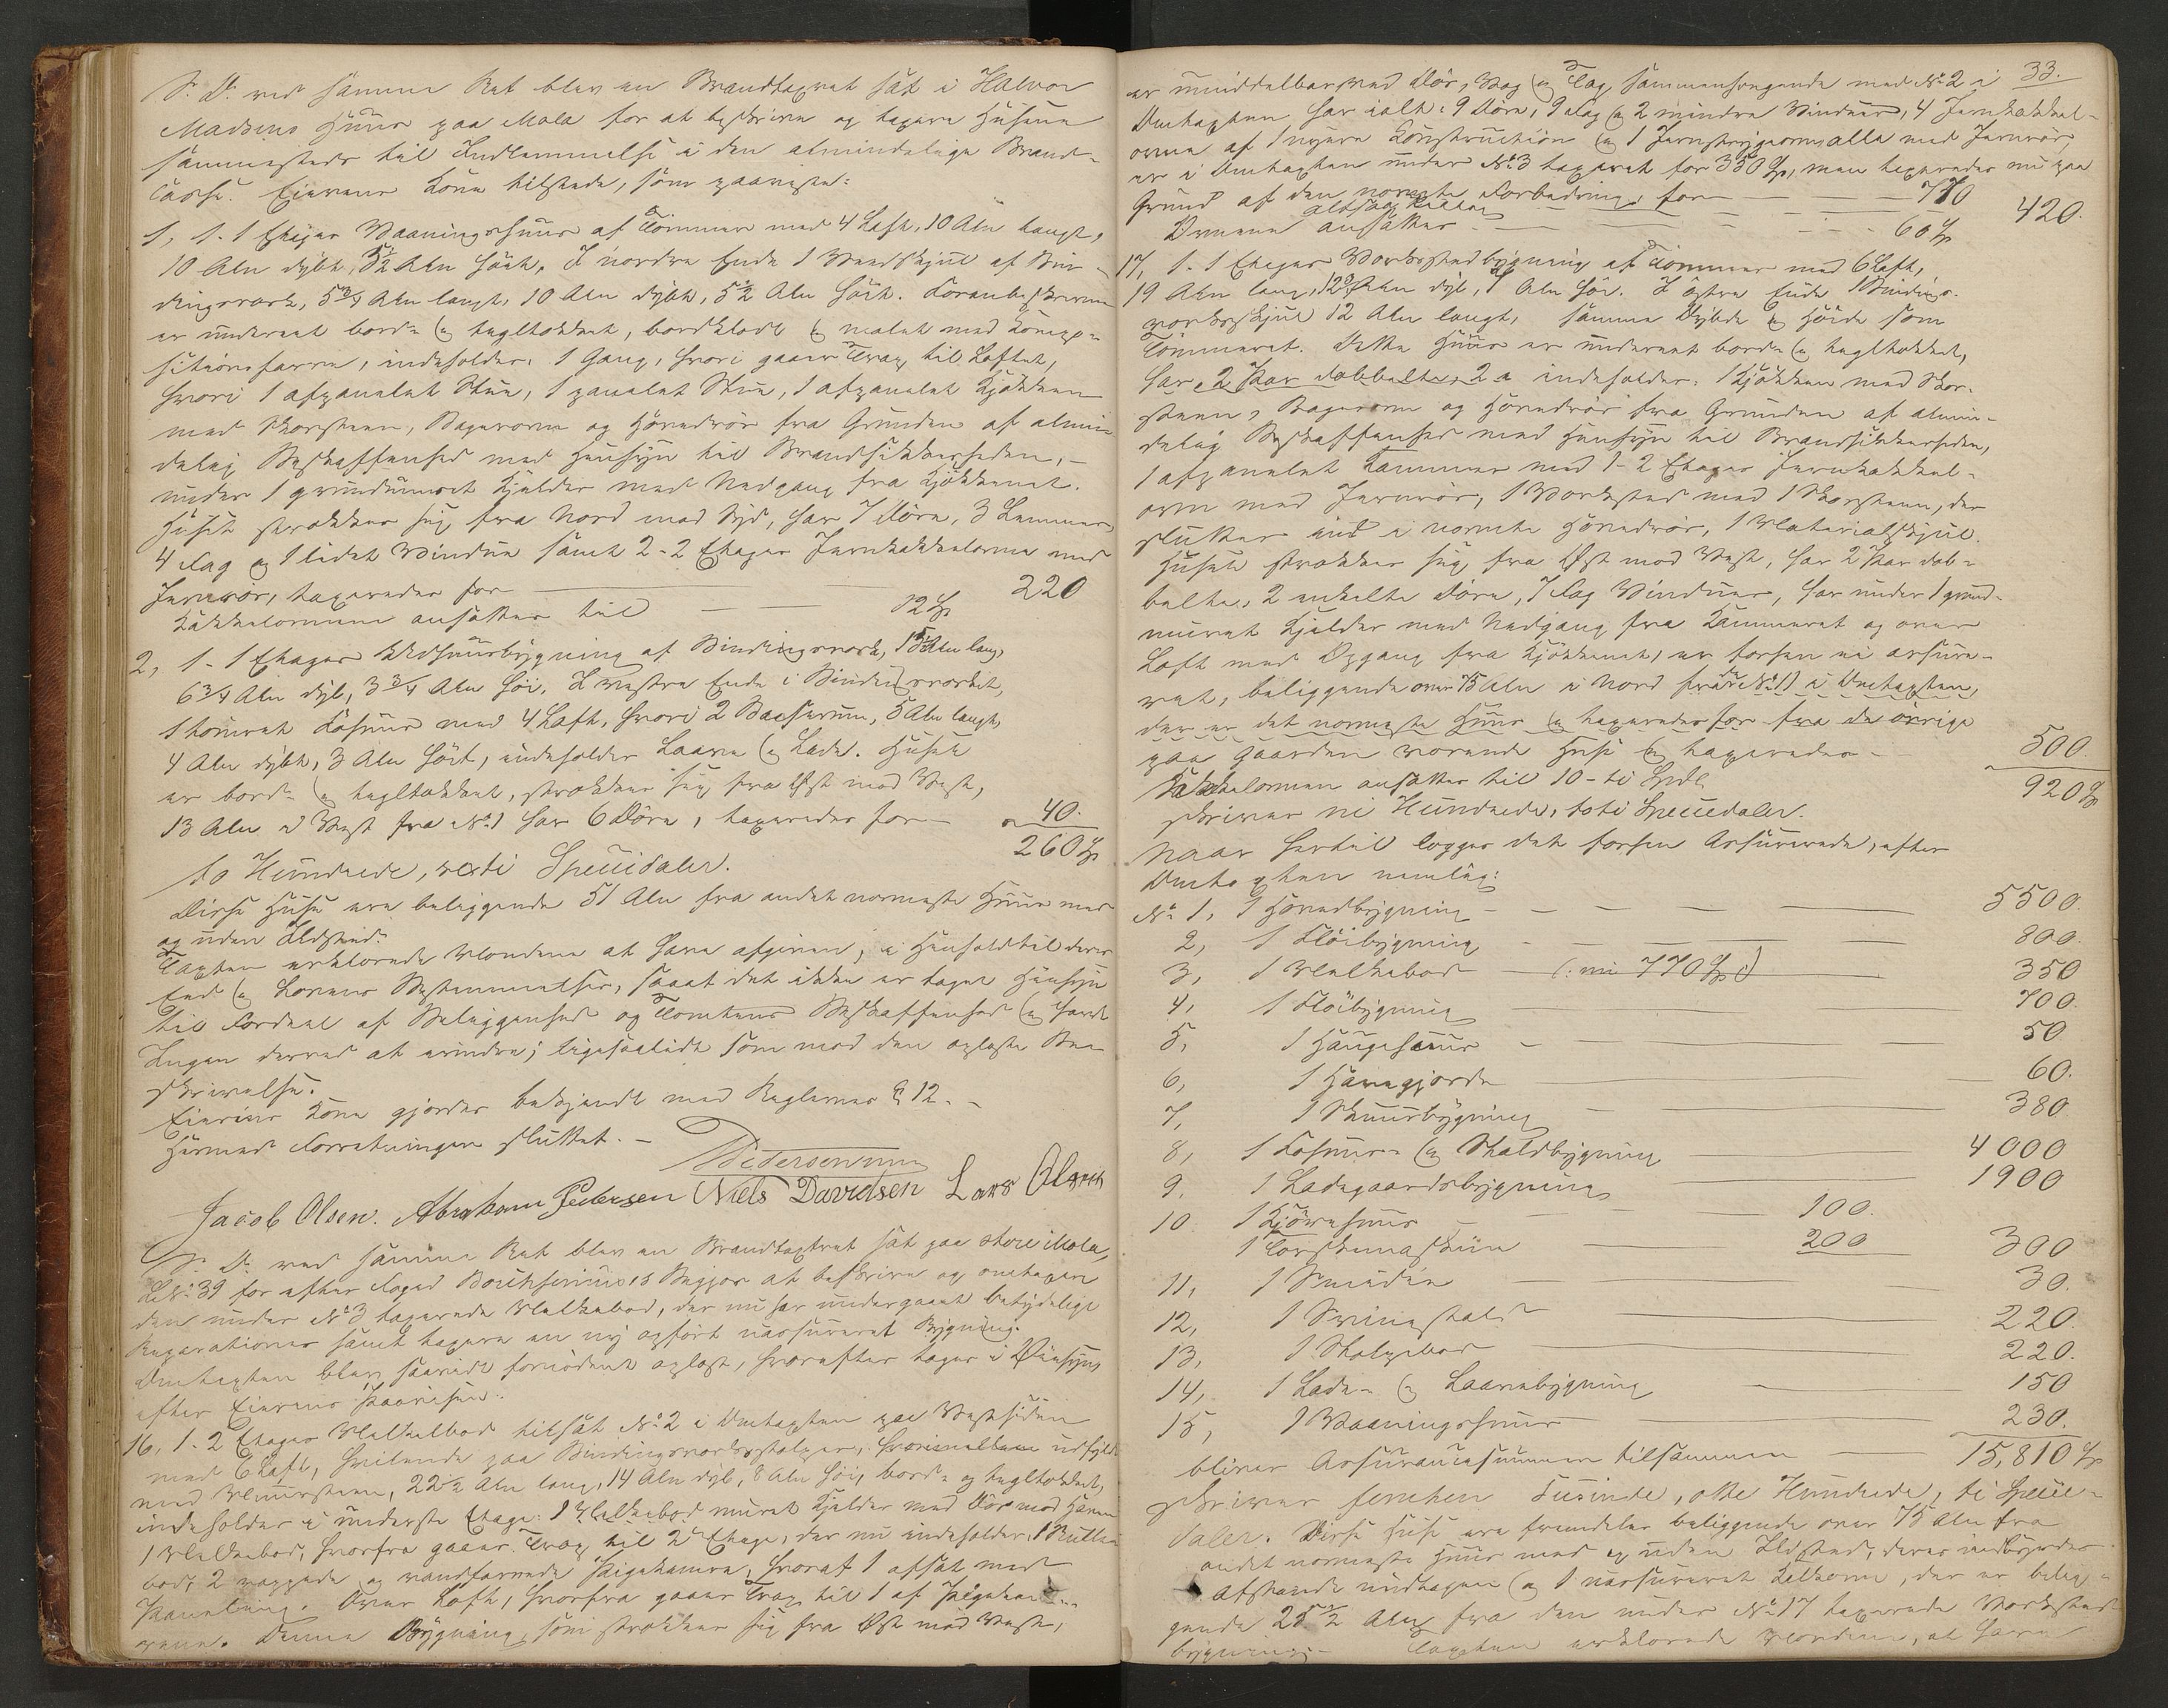 S. D. ved samme Ret blev en Brandtaxret sat i Halvor
Madsens Huus paa Mola for at beskrive og taxere Husene
sammesteds til Indlemmelse i den almindelige Brand-
casse. Eierens Kone tilstede, som paaviste:
1, 1-1 Etages Vaaningshuus af Tømmer med 4 Laft, 10 Alen langt,
10 Alen dybt, 5½ Alen høit. I nordre Ende 1 Vedskjul af Bin-
dingsverk, 5¾ Alen langt, 10 Alen dybt, 5½ Alen høit. Foranbeskrevne
er underent bord- og tegltækket, bordklædt og malet med Kompo-
sitionsfarve, indeholder: 1 Gang, hvori gaaer Trap til Loftet,
hvori 1 afpanelet Stue, 1 panelet Stue, 1 afpanelet Kjøkken
med Skorsteen, Bagerovn og Hovedrør fra Grunden af almin-
delig Beskaffenhed med Hensyn til Brandsikkerheden,
under 1 grundmuret Kjelder med Nedgang fra Kjøkkenet.
Huset strækker sig fra Nord mod Syd, har 7 Døre, 3 Lemmer
4 Fag og 1 lidet Vindue samt 2-2 Etages Jernkakkelovne med
Jernrør, taxeredes for 220
Kakkelovnene ansættes til 12 Sp
2, 1-1 Etages Udhuusbygning af Bindingsverk, 15 Alen lang,
6¾ Alen dyb, 3¾ Alen høi. I vestre Ende i Bindingsverket,
1 tømret Fæhuus med 4 Laft, hvori 2 Baasrum, 5 Alen langt,
4 Alen dybt, 3 Alen høit, indeholder Laave og Lade. Huset
er bord- og tegltækket, strækker sig fra Øst mod Vest,
13 Alen i Vest fra No 1 har 6 Døre, taxeredes for 40.
260 Sp
to Hundrede, sexti Speciedaler.
Disse Huse ere beliggende 51 Alen fra andet nærmeste Huus med
og uden Ildsted.
Taxten erklærede Mændene at have afgiven, i Henhold til deres
Eed og Lovens Bestemmelser, saaat det ikke er taget Hensyn
til Fordeel af Beliggenhed og Tomtens Beskaffenhed og havde
Ingen derved at erindre; ligesaalidt som mod den oplæste Be-
skrivelse.
Eierens Kone gjordes bekjendt med Reglernes § 12.
Hermed Forretningen sluttet.
Pedersen
Jacob Olsen. Abraham Pedersen Niels Davidsen Lars Olsen
S. D. ved samme Ret blev en Brandtaxtret sat paa store Mola,
L No 39 for efter Foged Begjær at beskrive og omtaxere
den under No 3 taxerede Melkebod, der nu har undergaaet betydelige
Reparationer samt taxere en ny opført uassureret Bygning.
Omtaxten blev saavidt fornødent oplæst, hvorefter toges i Øiesyn
efter Eierens Paaviisen:
16, 1-2 Etages Melkebod tilsat No 2 i Omtaxten paa Vestsiden
med 6 Laft, hvilende paa Bindingsverksstolper, hvorimellem udfyldt
med Muursteen, 22½ Alen lang, 14 Alen dyb, 8 Alen høi, bord- og tegltækket,
indeholder i underste Etage: 1 Melkebod muret Kjelder med Dør mod Haven
1 Melkebod, hvorfra gaaer Trap til 2den Etage, der nu indeholder, 1 Rulle-
bod, 2 pappede og vandfarvede Pigekamre, hvoraf 1 afsat med
Paneling. Over Loft, hvorfra gaaer Trap til 1 af Pigekam-
rene. Denne Bygning, som strækker sig fra Øst mod Vest,
33.
er umiddelbar med Dør, Væg og Tag sammenhængende med No 2 i
Omtaxten har ialt: 9 Døre, 9 Fag og 2 mindre Vinduer, 4 Jernkakkel-
ovne af nyere Konstruction og 1 med Jernrør,
er i Omtaxten under No 3 taxeret for 350 Sp, men taxeredes nu paa
Grund af den nævnte Forbedring for 770
altsaa tillæg 420.
Ovnene ansættes 60 Sp
17, 1-1 Etages Verkstedbygning af Tømmer med 6 Laft,
19 Alen lang, 12¾ Alen dyb, 7 Alen høi. I østre Ende 1 Bindings-
verksskjul 12 Alen langt, samme Dybde og Høide som
Tømmeret. Dette Huus er underent bord- og tegltækket,
har 2 Par dobbelte, 2 e indeholder: 1 Kjøkken med Skor-
steen, Bagerovn og Hovedrør fra Grunden af almin-
delig Beskaffenhed med Hensyn til Brandsikkerheden,
1 afpanelet Kammer med 1-2 Etages Jernkakkel-
ovn med Jernrør, 1 Verksted med 1 Skorsteen, der
slutter ind i nævnte Hovedrør, 1 Materialskjul.
Huset strækker sig fra Øst mod Vest, har 2 Par dob-
belte, 2 enkelte Døre, 7 Fag Vinduer, har under 1 grund-
muret Kjelder med Nedgang fra Kammeret og over
Loft med Opgang fra Kjøkkenet, er forhen ei assure-
ret, beliggende over 75 Alen i Nord fra No 11 i Omtaxten,
der er det nærmeste Huus og taxeredes for fra de øvrige
paa Gaarden værende Huse og taxeredes 500
Kakkelovnen ansættes til 10-ti Spd. 920 Sp
skriver ni Hundrede, toti Speciedaler.
Naar hertil lægges det forhen Assurerede, efter
Omtaxten nemlig:
No 1, 1 Hovedbygning 5500.
2, 1 Fløibygning 800.
3, 1 Melkebod (: nu 770 Sp :) 350
4, 1 Fløibygning 700.
5, 1 Hangehuus 50
6, 1 Havegjærde 60.
7, 1 Skuurbygning 380
8, 1 Fæhuus- og Staldbygning 4000
9, 1 Ladegaardsbygning 1900
10. 1 Kjørehuus 100.
1 Tærskemaskine 200 300
11, 1 Smidie 30.
12, 1 Svinestald 220.
13, 1 Stolpebod 220.
14, 1 Lade- og Laavebygning 150
15, 1 Vaaningshuus 230.
bliver Assurancesummen tilsammen 15,810 Sp
skriver femten Tusinde, otte Hundrede, ti Specie-
daler. Disse Huse ere fremdeles beliggende over 75 Alen fra
andet nærmeste Huus med og uden Ildsted, deres indbyrdes
Afstande undtagen og 1 uassureret Kølhorn, der er belig-
gende 25½ Alen fra den under No 17 taxerede Verksted-
bygning. Taxten erklærede Mændene, at have